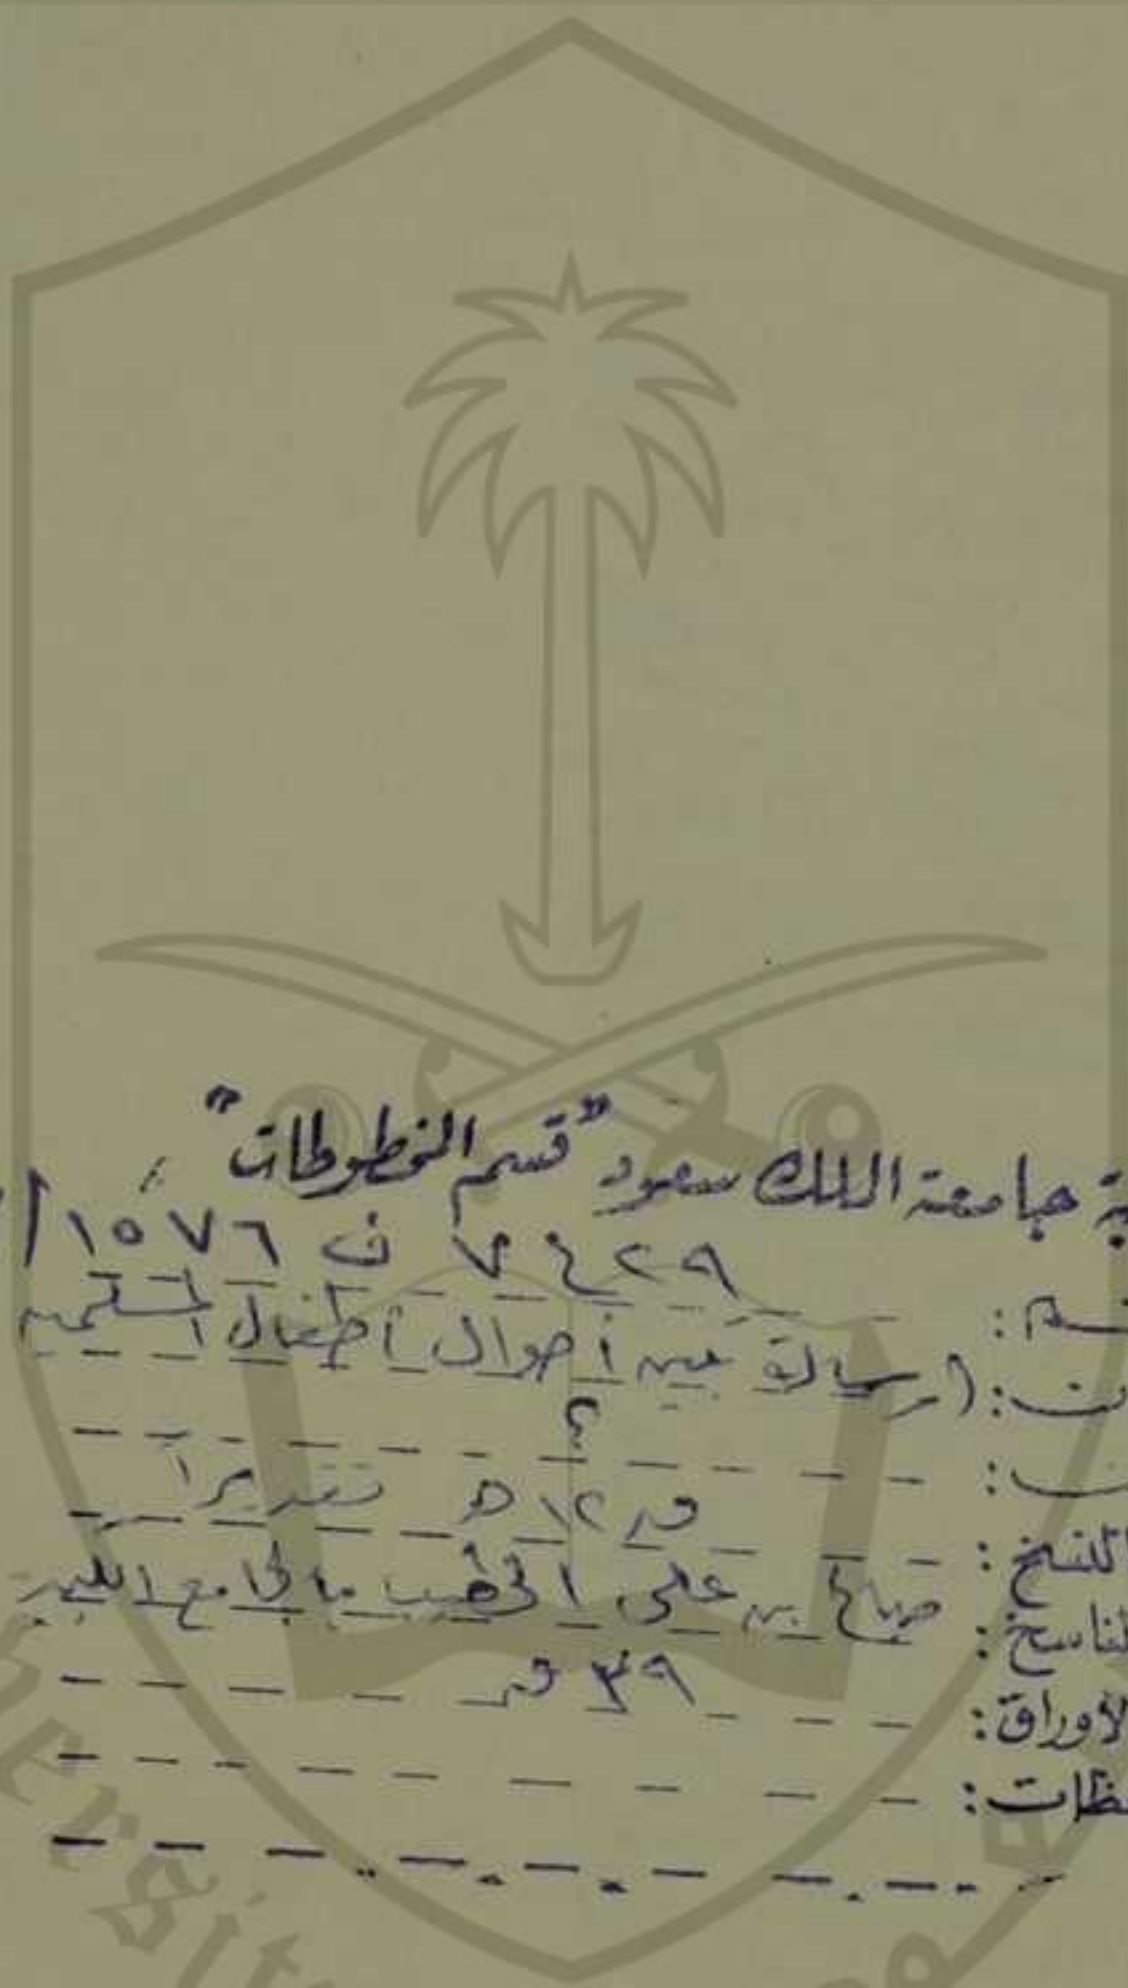 ية جامعة الملك سعود "قسم المخطوطات"
٧٤٢٩ ف ١٥٧٦ /
(رسالة تبين أحوال أطفال المسلمين
؟
ق ١٢ هـ تقديراً
للنسخ:
لناسخ: صالح بن علي الخطيب بالجامع الكبير
لأوراق: ٣٩ ق
ظات:
ersit